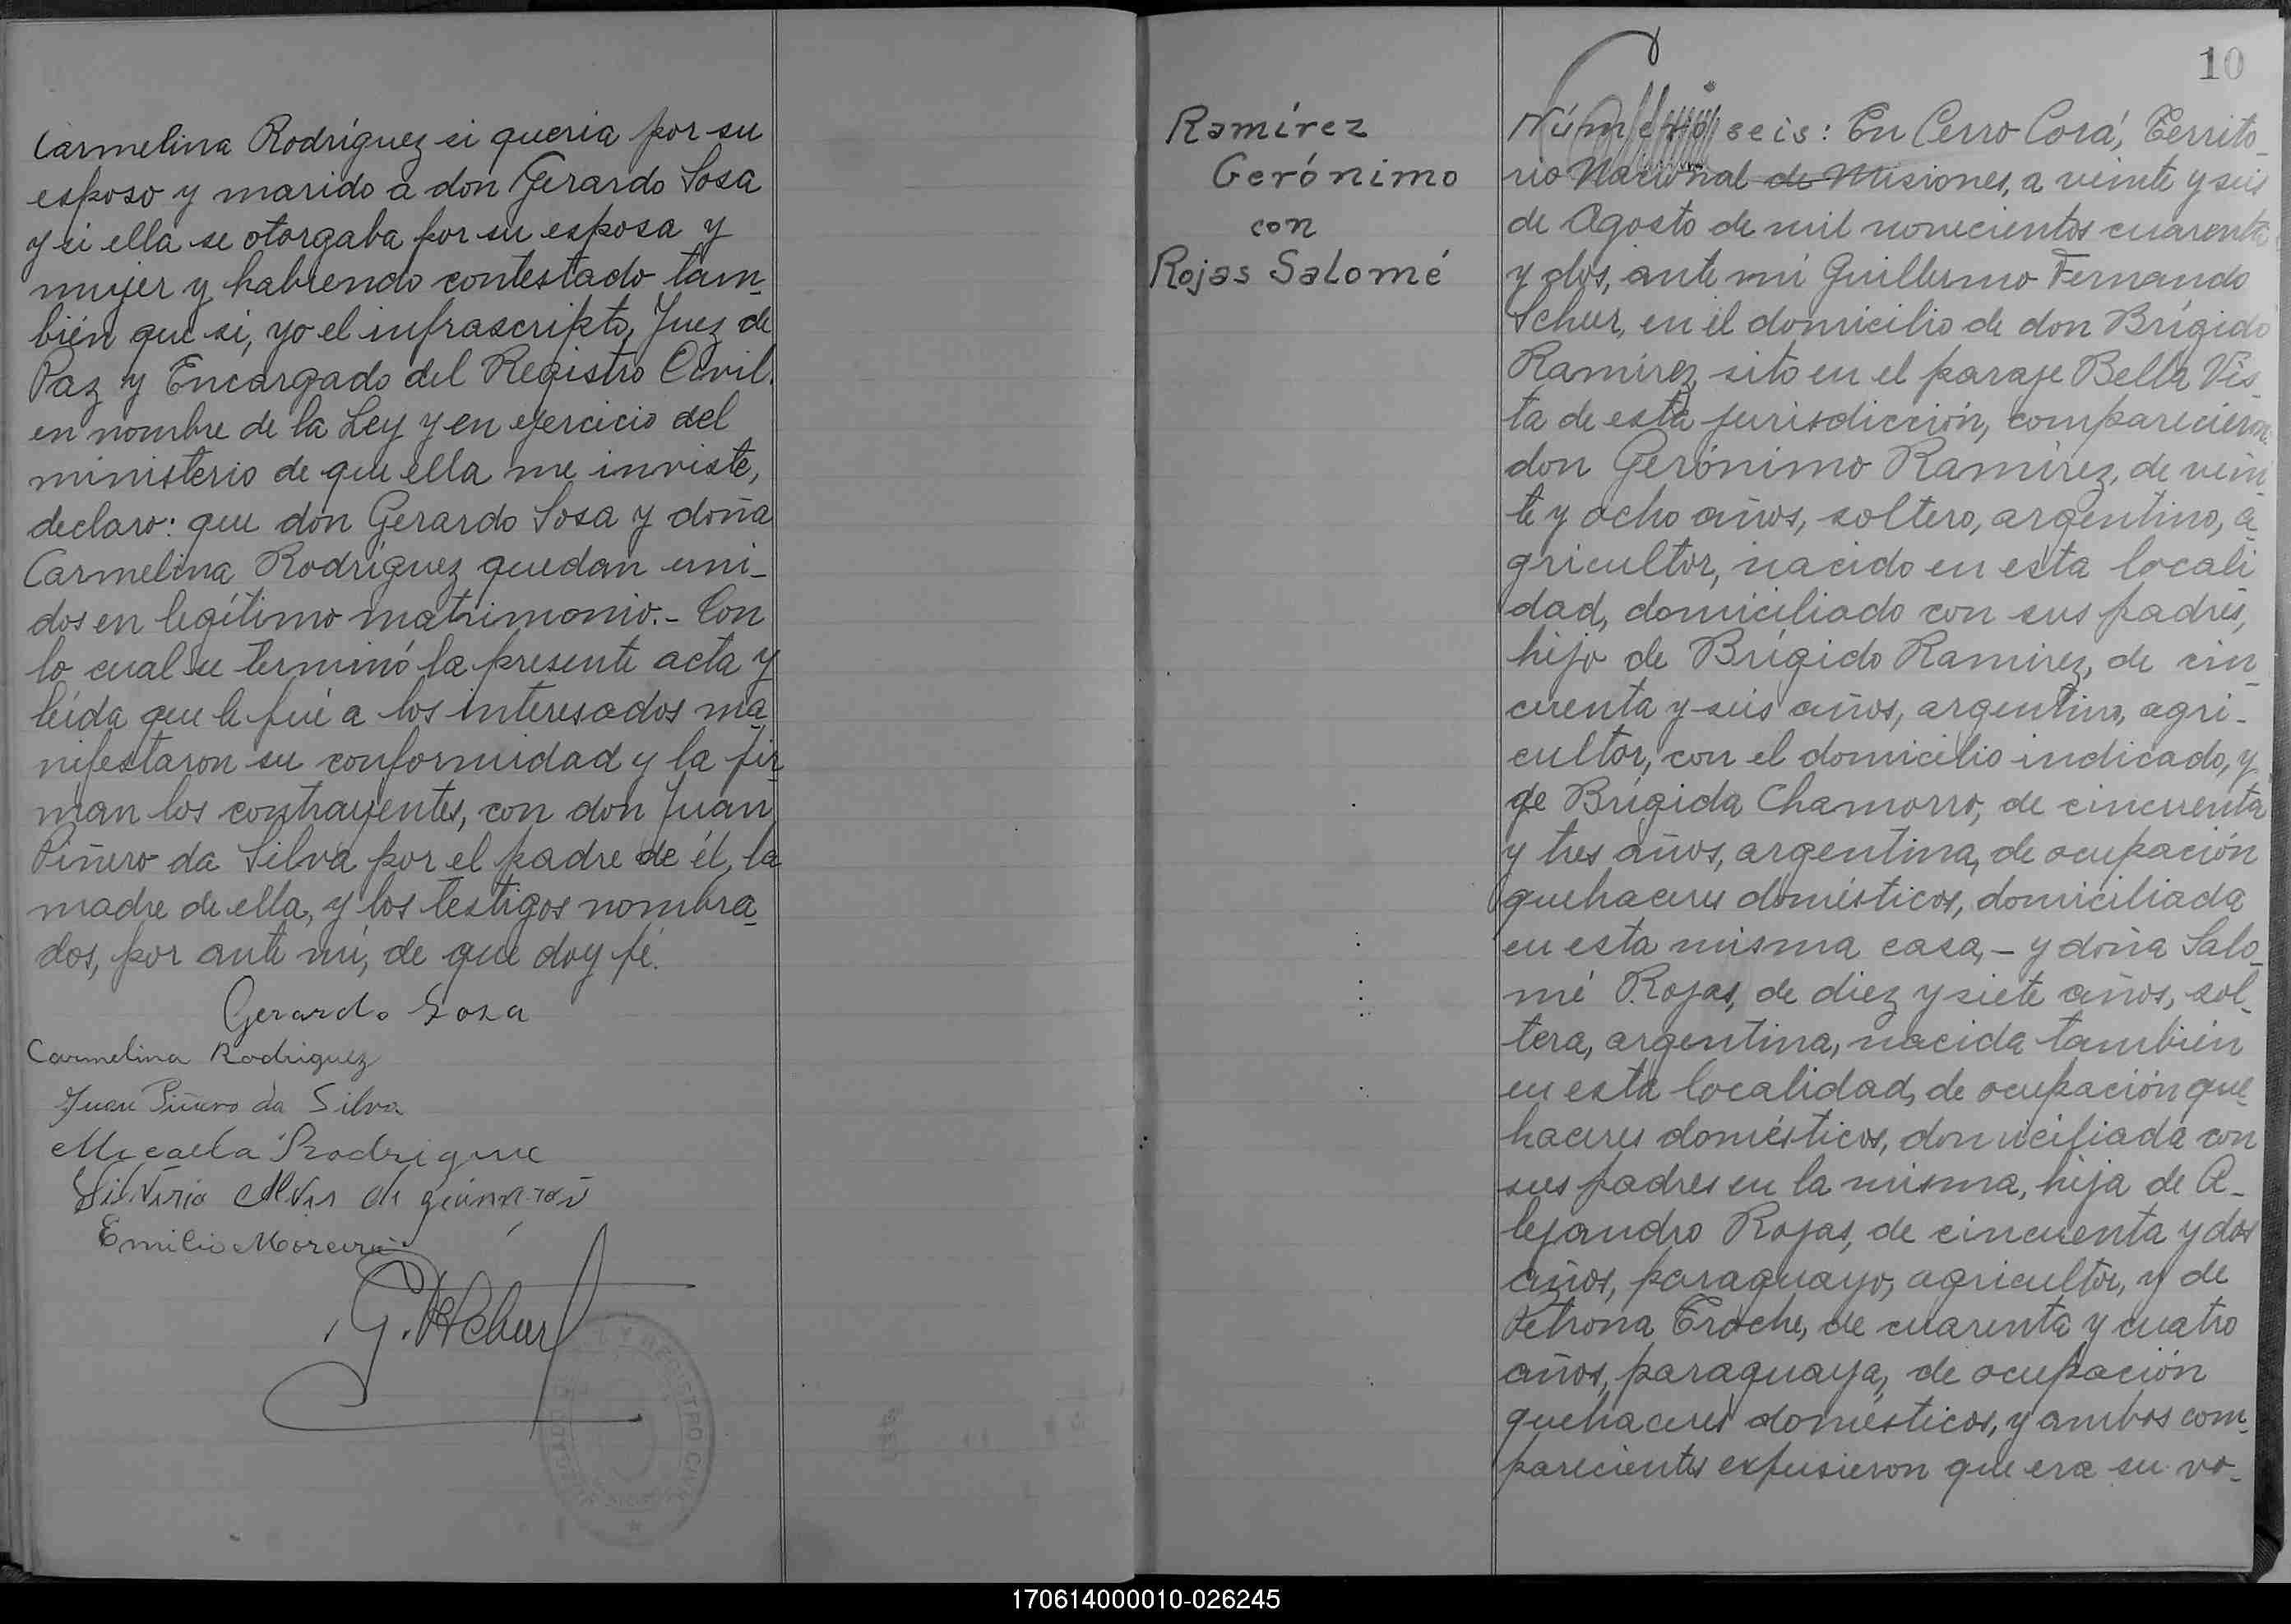 Carmelina Rodríguez si queria por su
esposo y marido a don Gerardo Sosa
y si ella se otorgaba por su esposa y
mujer y habiendo contestado tam-
bién que si, yo el infrascripto, Juez de
Paz y Encargado del Registro Civil.
en nombre de la Ley y en ejercicio del
ministerio de que ella me inviste,
declaro: que don Gerardo Sosa y doña
Carmelina Rodríguez quedan uni-
dos en legítimo matrimonio.- Con
lo cual se terminó la presente acta y
leída que le fué a los interesados ma-
nifestaron su conformidad y la fir-
man los contrayentes, con don Juan
Piñero da Silva por el padre de él, la
madre de ella, y los testigos nombra-
dos, por ante mí, de que doy fé.
Gerardo Sosa
Carmelina Rodriguez
Juan Piñero da Silva
Micaela Rodrigue
Silverio Alves de
Emilio Moreira
G. F. Scheur
REGISTRO CIVIL
Ramírez
Gerónimo
con
Rojas Salomé
10
Número seis: En Cerro Corá, Territo-
rio Nacional de Misiones, a veinte y seis
de Agosto de mil novecientos cuarenta
y dos, ante mí Guillermo Fernando
Scheur, en el domicilio de don Brígido
Ramírez, sito en el paraje Bella Vis-
ta de esta jurisdicción, comparecieron
don Gerónimo Ramírez, de vein-
te y ocho años, soltero, argentino, a-
gricultor, nacido en esta locali
dad, domiciliado con sus padres,
hijo de Brígido Ramírez, de cin-
cuenta y seis años, argentino, agri-
cultor, con el domicilio indicado, y
de Brígida Chamorro, de cincuenta
y tres años, argentina, de ocupación
quehaceres domésticos, domiciliada
en esta misma casa,- y doña Salo-
mé Rojas, de diez y siete años, sol-
tera, argentina, nacida también
en esta localidad, de ocupación que-
haceres domésticos, domiciliada con
sus padres en la misma, hija de A-
lejandro Rojas, de cincuenta y dos
años, paraguayo, agricultor, y de
Petrona Troche, de cuarenta y cuatro
años, paraguaya, de ocupación
quehaceres domésticos, y ambos com-
parecientes expusieron que era su vo-
170614000010-026245